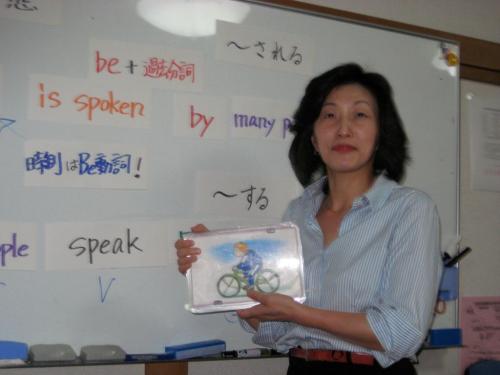 〜される
be + 過去分詞
is spoken
by many p
時制はBe動詞!
〜する
ple
speak
V